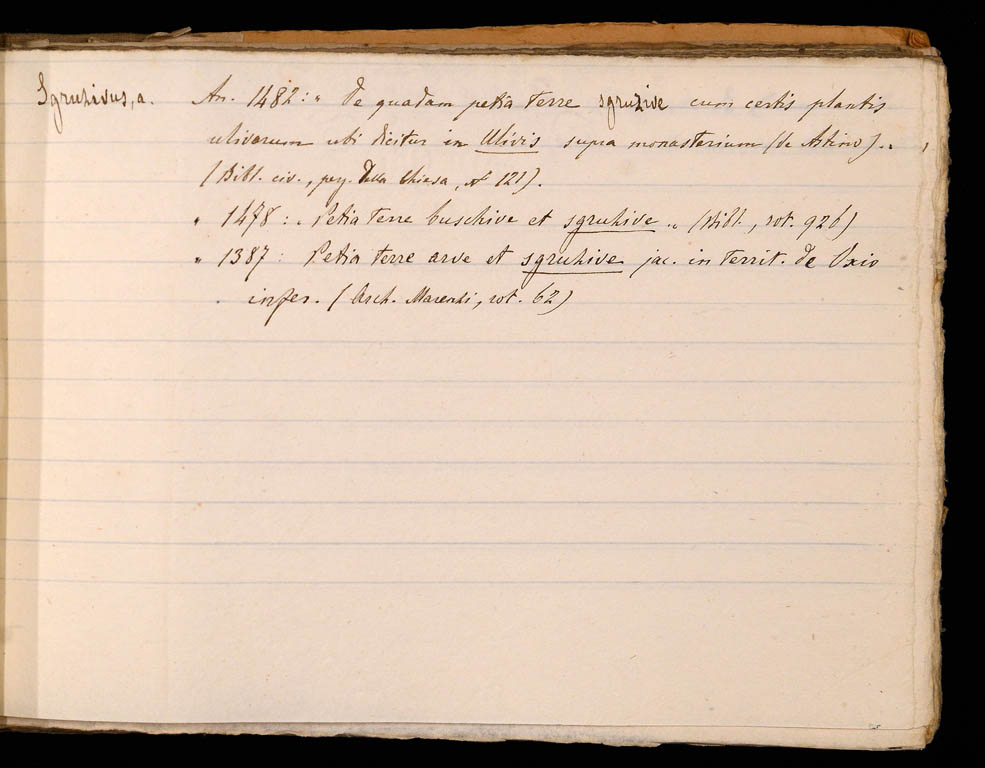 Sgruzivus, a. An. 1482: „ de quadam petia terre sgruzive cum certis plantis
ulivarum ubi dicitur in Ulivis supra monasterium (de Astino) „
(Bibl. civ., perg. Della Chiesa, n° 121).
„ 1478: „ Petia terre buschive et sgruzive „ (Bibl., rot. 926)
„ 1387: Petia terre arve et sgruzive jac. in territ. de Oxio
infer. (Arch. Marenzi, rot. 62)